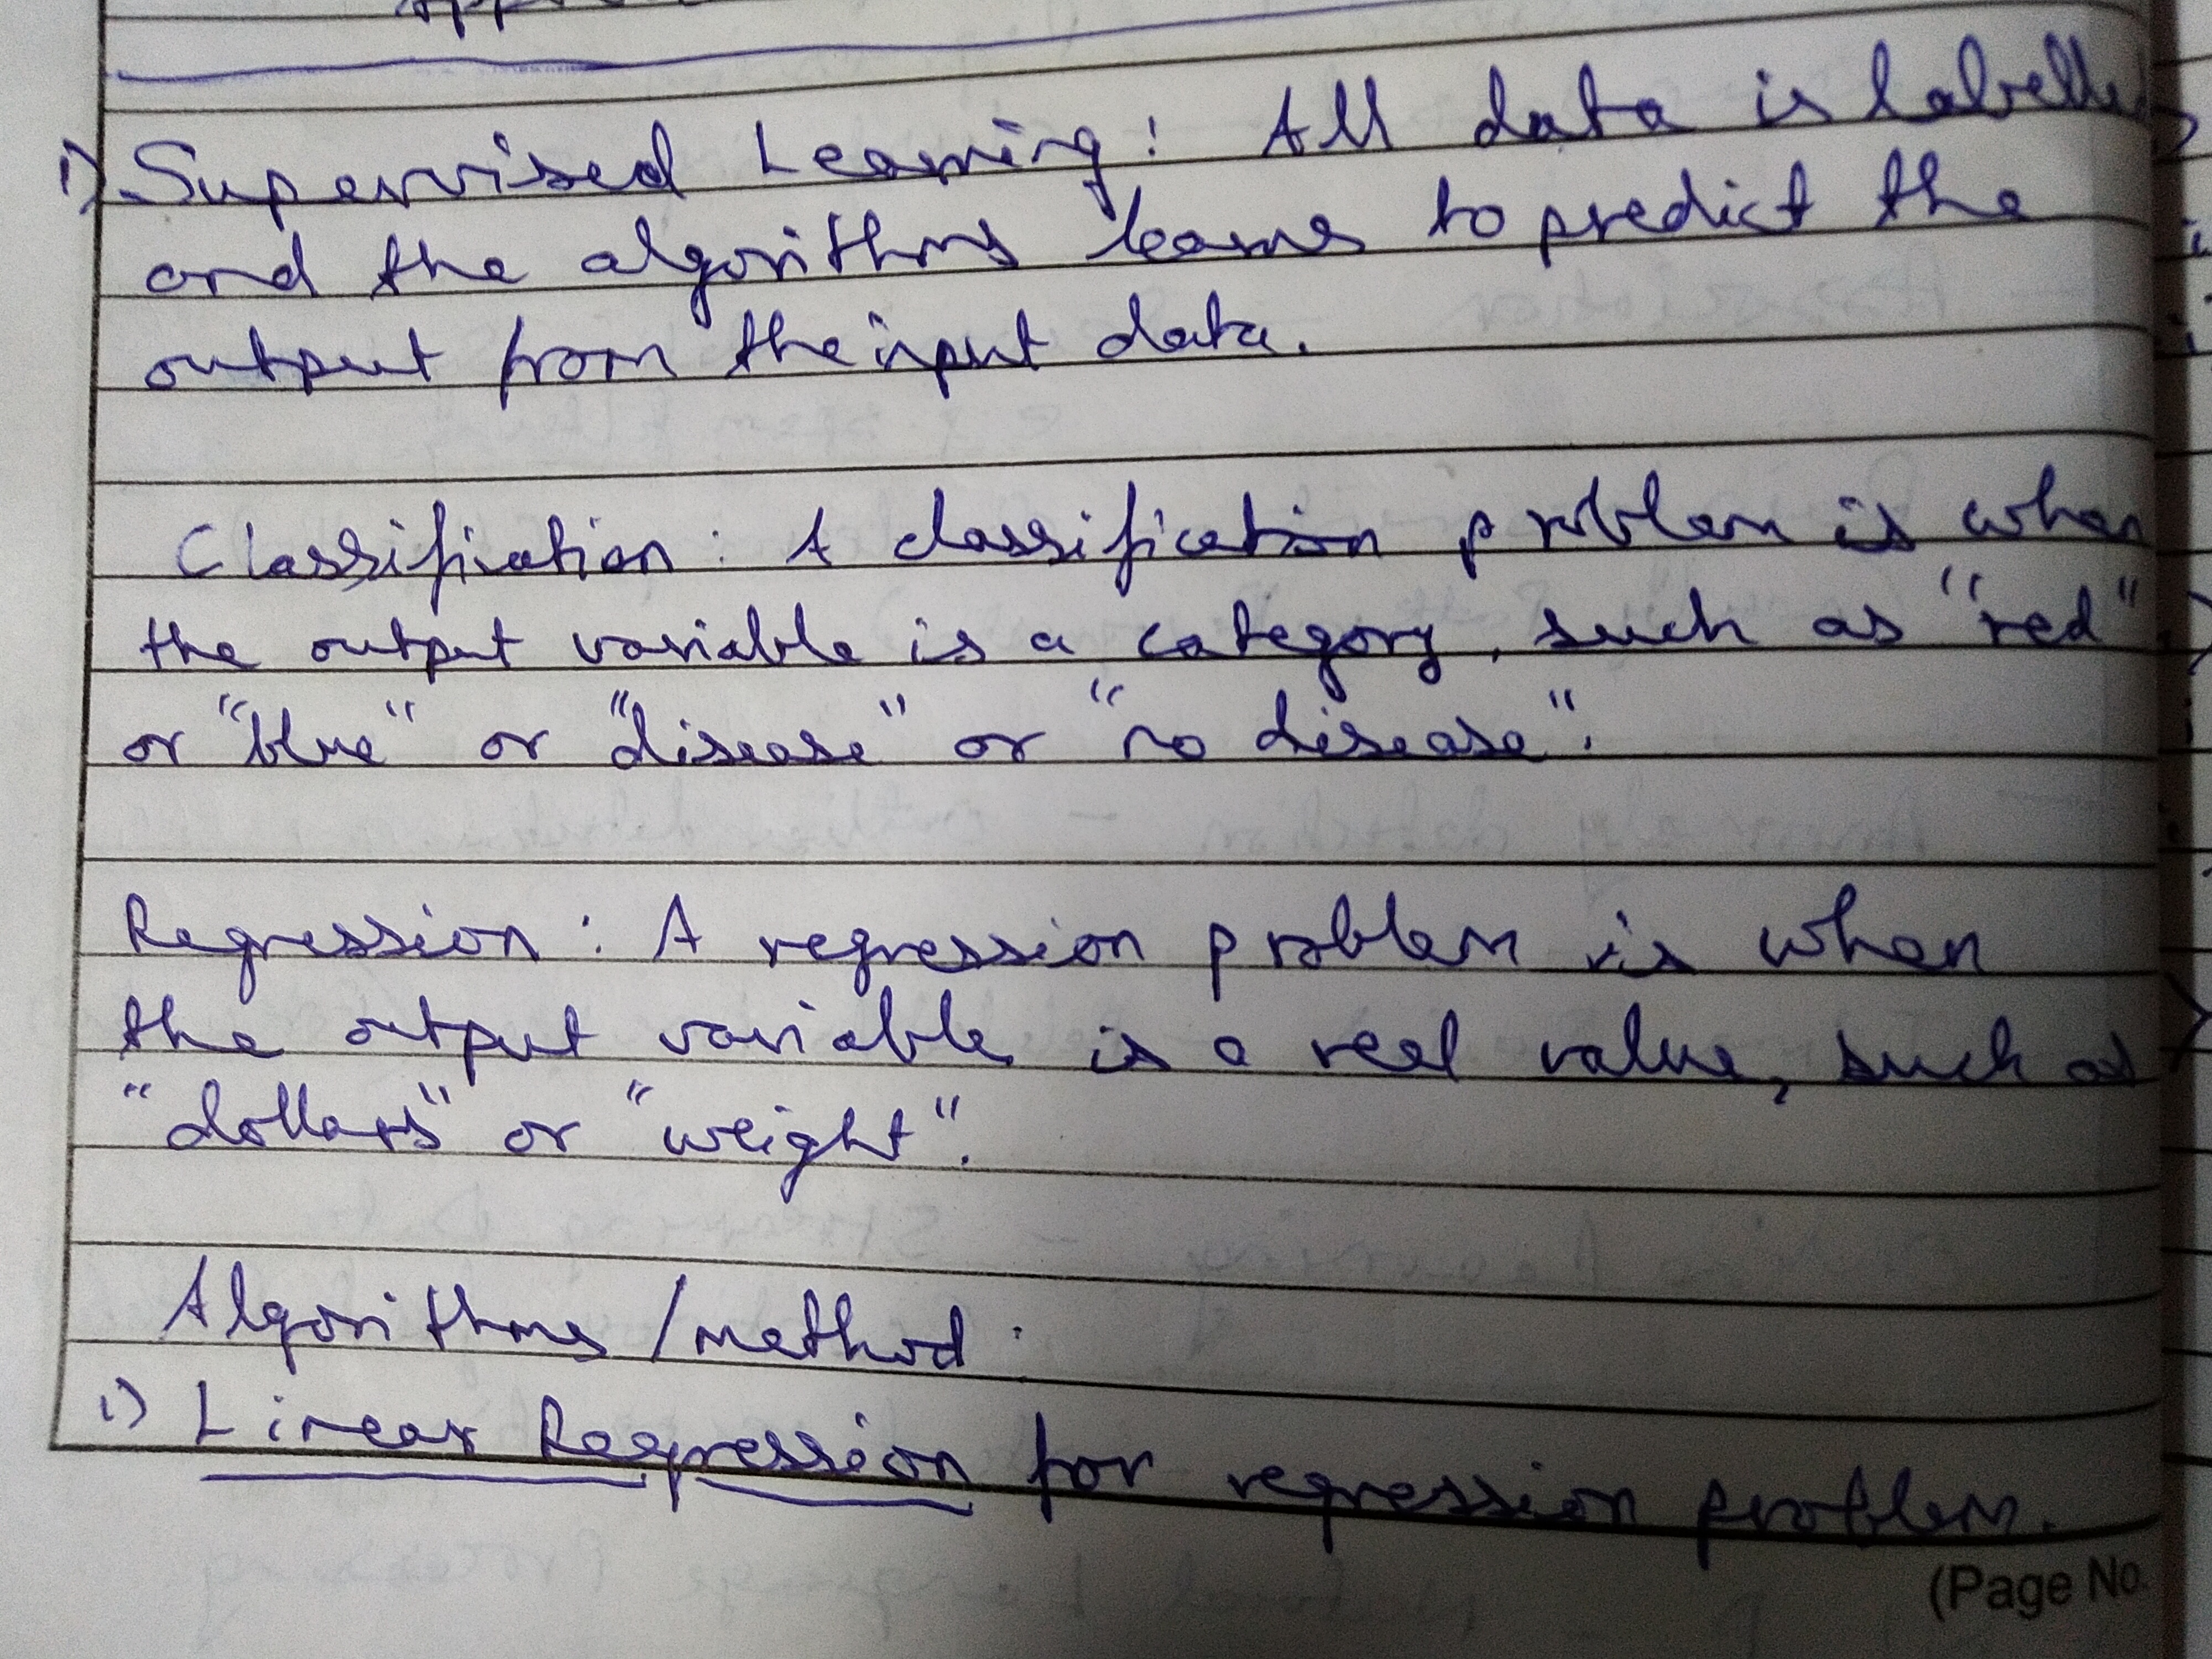 1) Supervised Learning: All data is labelled
and the algorithms learns to predict the
output from the input data.
Classification: A classification problem is when
the output variable is a category, such as "red"
or "blue" or "disease" or "no disease".
Regression: A regression problem is when
the output variable is a real value, such as
"dollars" or "weight".
Algorithms / method.
1) Linear Regression for regression problem.
(Page No.